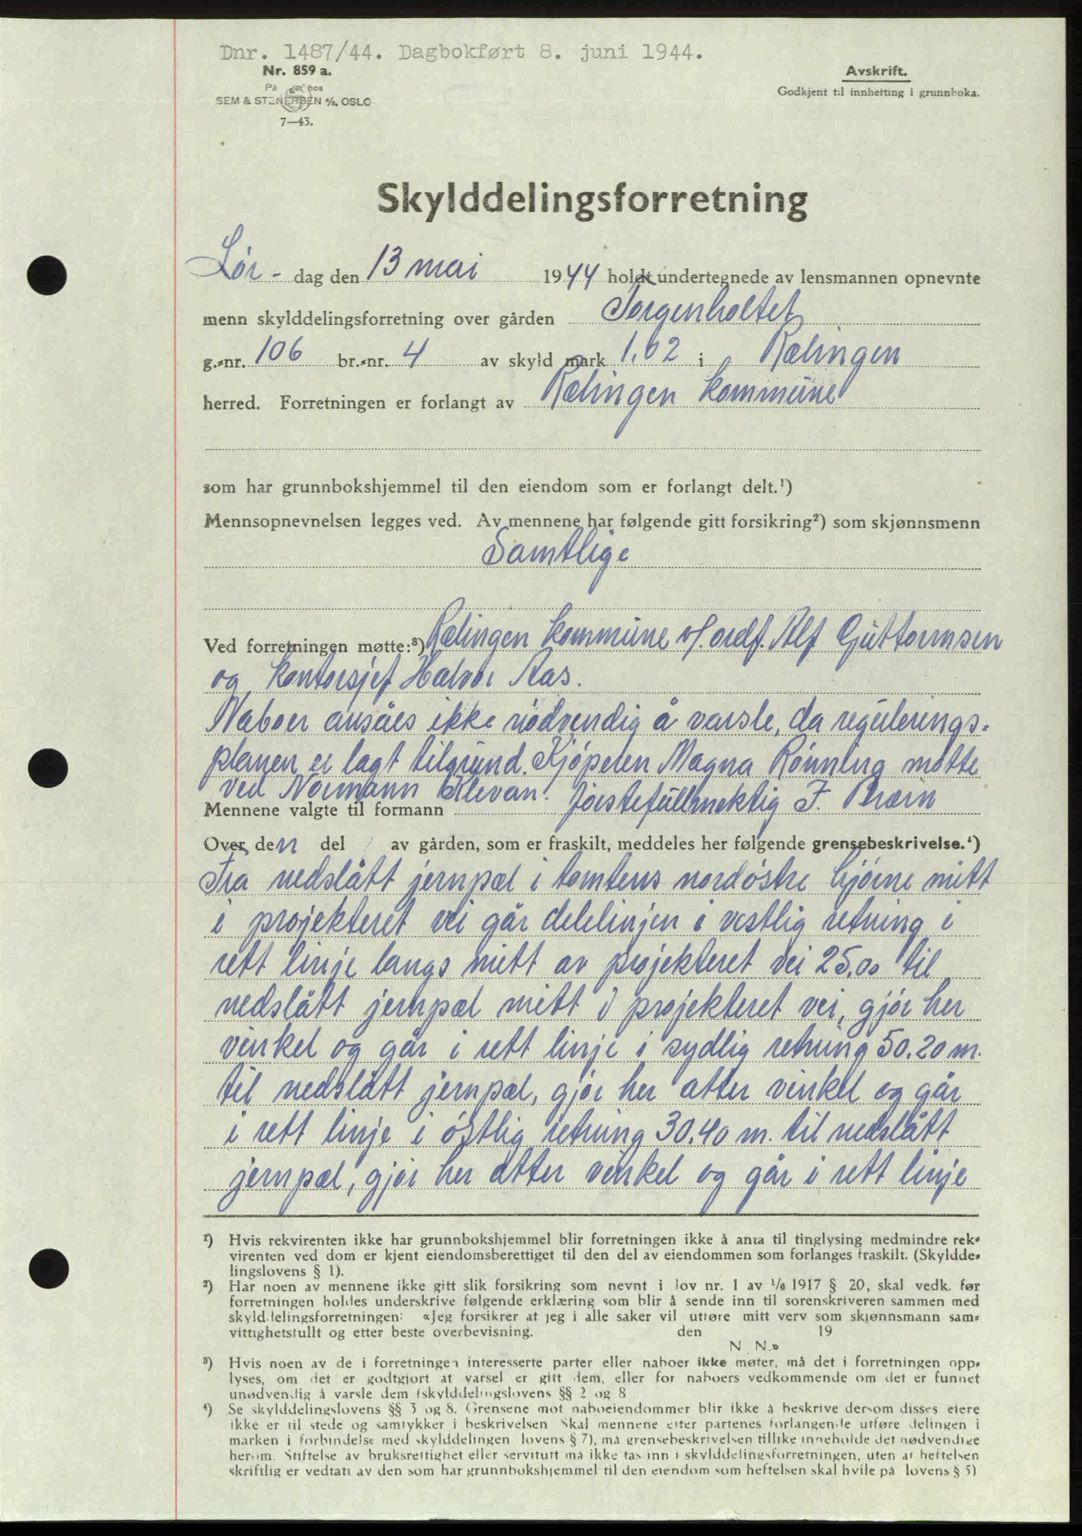 Dnr. 1487/44. Dagbokført 8. juni 1944.
Nr. 859 a.
På hos
SEM & STENERSEN A/S, OSLO
7—43.
Avskrift.
Godkjent til innhefting i grunnboka.
Skylddelingsforretning
Lør- dag den 13 mai 1944 holdt undertegnede av lensmannen opnevnte
menn skylddelingsforretning over gården Torgenholtet
g.-nr. 106 br.-nr. 4 av skyld mark 1,02 i Rælingen
herred. Forretningen er forlangt av Rælingen kommune
som har grunnbokshjemmel til den eiendom som er forlangt delt.¹)
Mennsopnevnelsen legges ved. Av mennene har følgende gitt forsikring²) som skjønnsmenn
Samtlige
Ved forretningen møtte:³) Rælingen kommune v/ ordf. Alf Guttormsen
og kontorsjef Halvor Aas.
Naboer ansåes ikke nødvendig å varsle, da regulerings-
planen er lagt tilgrund. Kjøperen Magna Rønning møtte
ved Normann Kirevan.
Mennene valgte til formann førstefullmektig F. Bræin
Over den del av gården, som er fraskilt, meddeles her følgende grensebeskrivelse.⁴)
Fra nedslått jernpæl i tomtens nordøstre hjørne mitt
i projekteret vei går delelinjen i vestlig retning i
rett linje langs mitt av projekteret vei 25,00 til
nedslått jernpæl mitt i projekteret vei, gjør her
vinkel og går i rett linje i sydlig retning 50.20 m.
til nedslått jernpæl, gjør her atter vinkel og går
i rett linje i østlig retning 30.40 m. til nedslått
jernpæl, gjør her atter vinkel og går i rett linje
¹) Hvis rekvirenten ikke har grunnbokshjemmel blir forretningen ikke å anta til tinglysing medmindre rek-
virenten ved dom er kjent eiendomsberettiget til den del av eiendommen som forlanges fraskilt. (Skyldde-
lingslovens § 1).
²) Har noen av mennene ikke gitt slik forsikring som nevnt i lov nr. 1 av 1/6 1917 § 20, skal vedk. før
forretningen holdes underskrive følgende erklæring som blir å sende inn til sorenskriveren sammen med
skylddelingsforretningen: «Jeg forsikrer at jeg i alle saker vil utføre mitt verv som skjønnsmann sam-
vittighetsfullt og etter beste overbevisning. den 19
N. N.»
³) Hvis noen av de i forretningen interesserte parter eller naboer ikke møter, må det i forretningen opp-
lyses, om det er godtgjort at varsel er gitt dem, eller for naboers vedkommende om det er funnet
unødvendig å varsle dem (skylddelingslovens §§ 2 og 8
⁴) Se skylddelingslovens §§ 3 og 8. Grensene mot naboeiendommer blir ikke å beskrive dersom disses eiere
ikke er til stede og samtykker i beskrivelsen Skal mennene etter partenes forlangende utføre delingen i
marken i forbindelse med skylddelingen lovens § 7), må grensebeskrivelsen tillike inneholde det nødvendige
herom. Stiftelse av bruksrettighet eller servitutt må ikke tas inn i skylddelingsforretningen, uten at heftelsen
skriftlig er vedtatt av den som har grunnbokshjemmel til den eiendom som heftelsen skal hvile på lovens § 5)